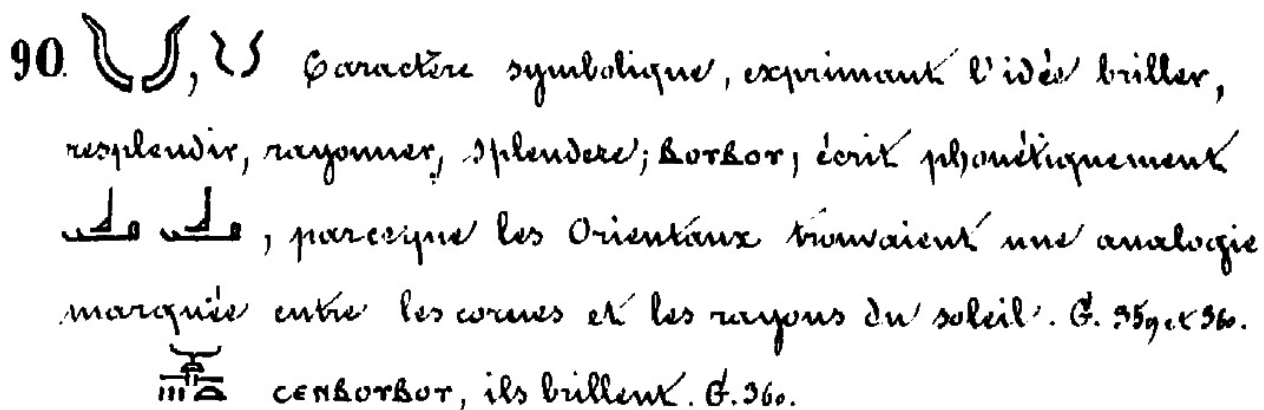 90. , Caractère symbolique, exprimant l'idée briller,
resplendir, rayonner, splendere; ⲃⲟⲣⲃⲟⲣ, écrit phonétiquement
, parceque les Orientaux trouvaient une analogie
marquée entre les cornes et les rayons du soleil. G. 359 et 360.
ⲥⲉⲛⲃⲟⲣⲃⲟⲣ, ils brillent. G. 360.